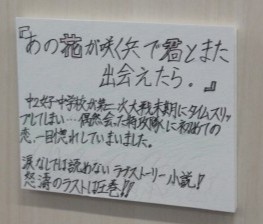 『あの花が咲く丘で君とまた
出会えたら。』
中2女子中学校が第二次大戦末期にタイムスリッ
プしてしまい…偶然会った特攻隊に初めての
恋、一目惚れしていまいました。
涙なしでは読めないラブストーリー小説!!
怒涛のラストは圧巻!!